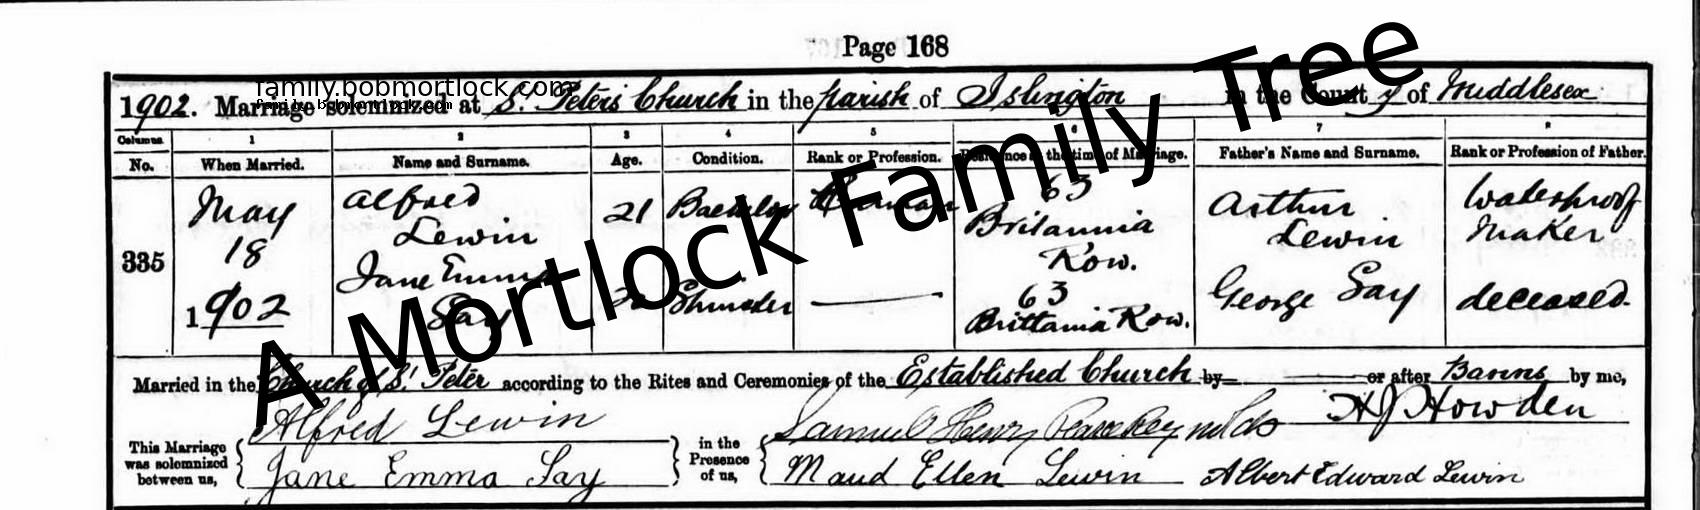 Page 168
family.bobmortlock.com
1902. Marriage solemnized at St. Peter's Church in the parish of Islington in the County of Middlesex
Columns 1 2 3 4 5 6 7 8
No. When Married. Name and Surname. Age. Condition. Rank or Profession. Residence at the time of Marriage. Father's Name and Surname. Rank or Profession of Father.
335
May
18
1902
Alfred
Lewin
21
Bachelor
63
Britannia
Row.
Arthur
Lewin
Waterproof
Maker
Jane Emma
Say
63
Brittania Row.
George Say
deceased.
A Mortlock Family Tree
Married in the Church of St. Peter according to the Rites and Ceremonies of the Established Church by or after Banns by me,
H J Howden
This Marriage
was solemnized
between us,
Alfred Lewin
Jane Emma Say
in the
Presence
of us,
Samuel Henry
Maud Ellen Lewin Albert Edward Lewin